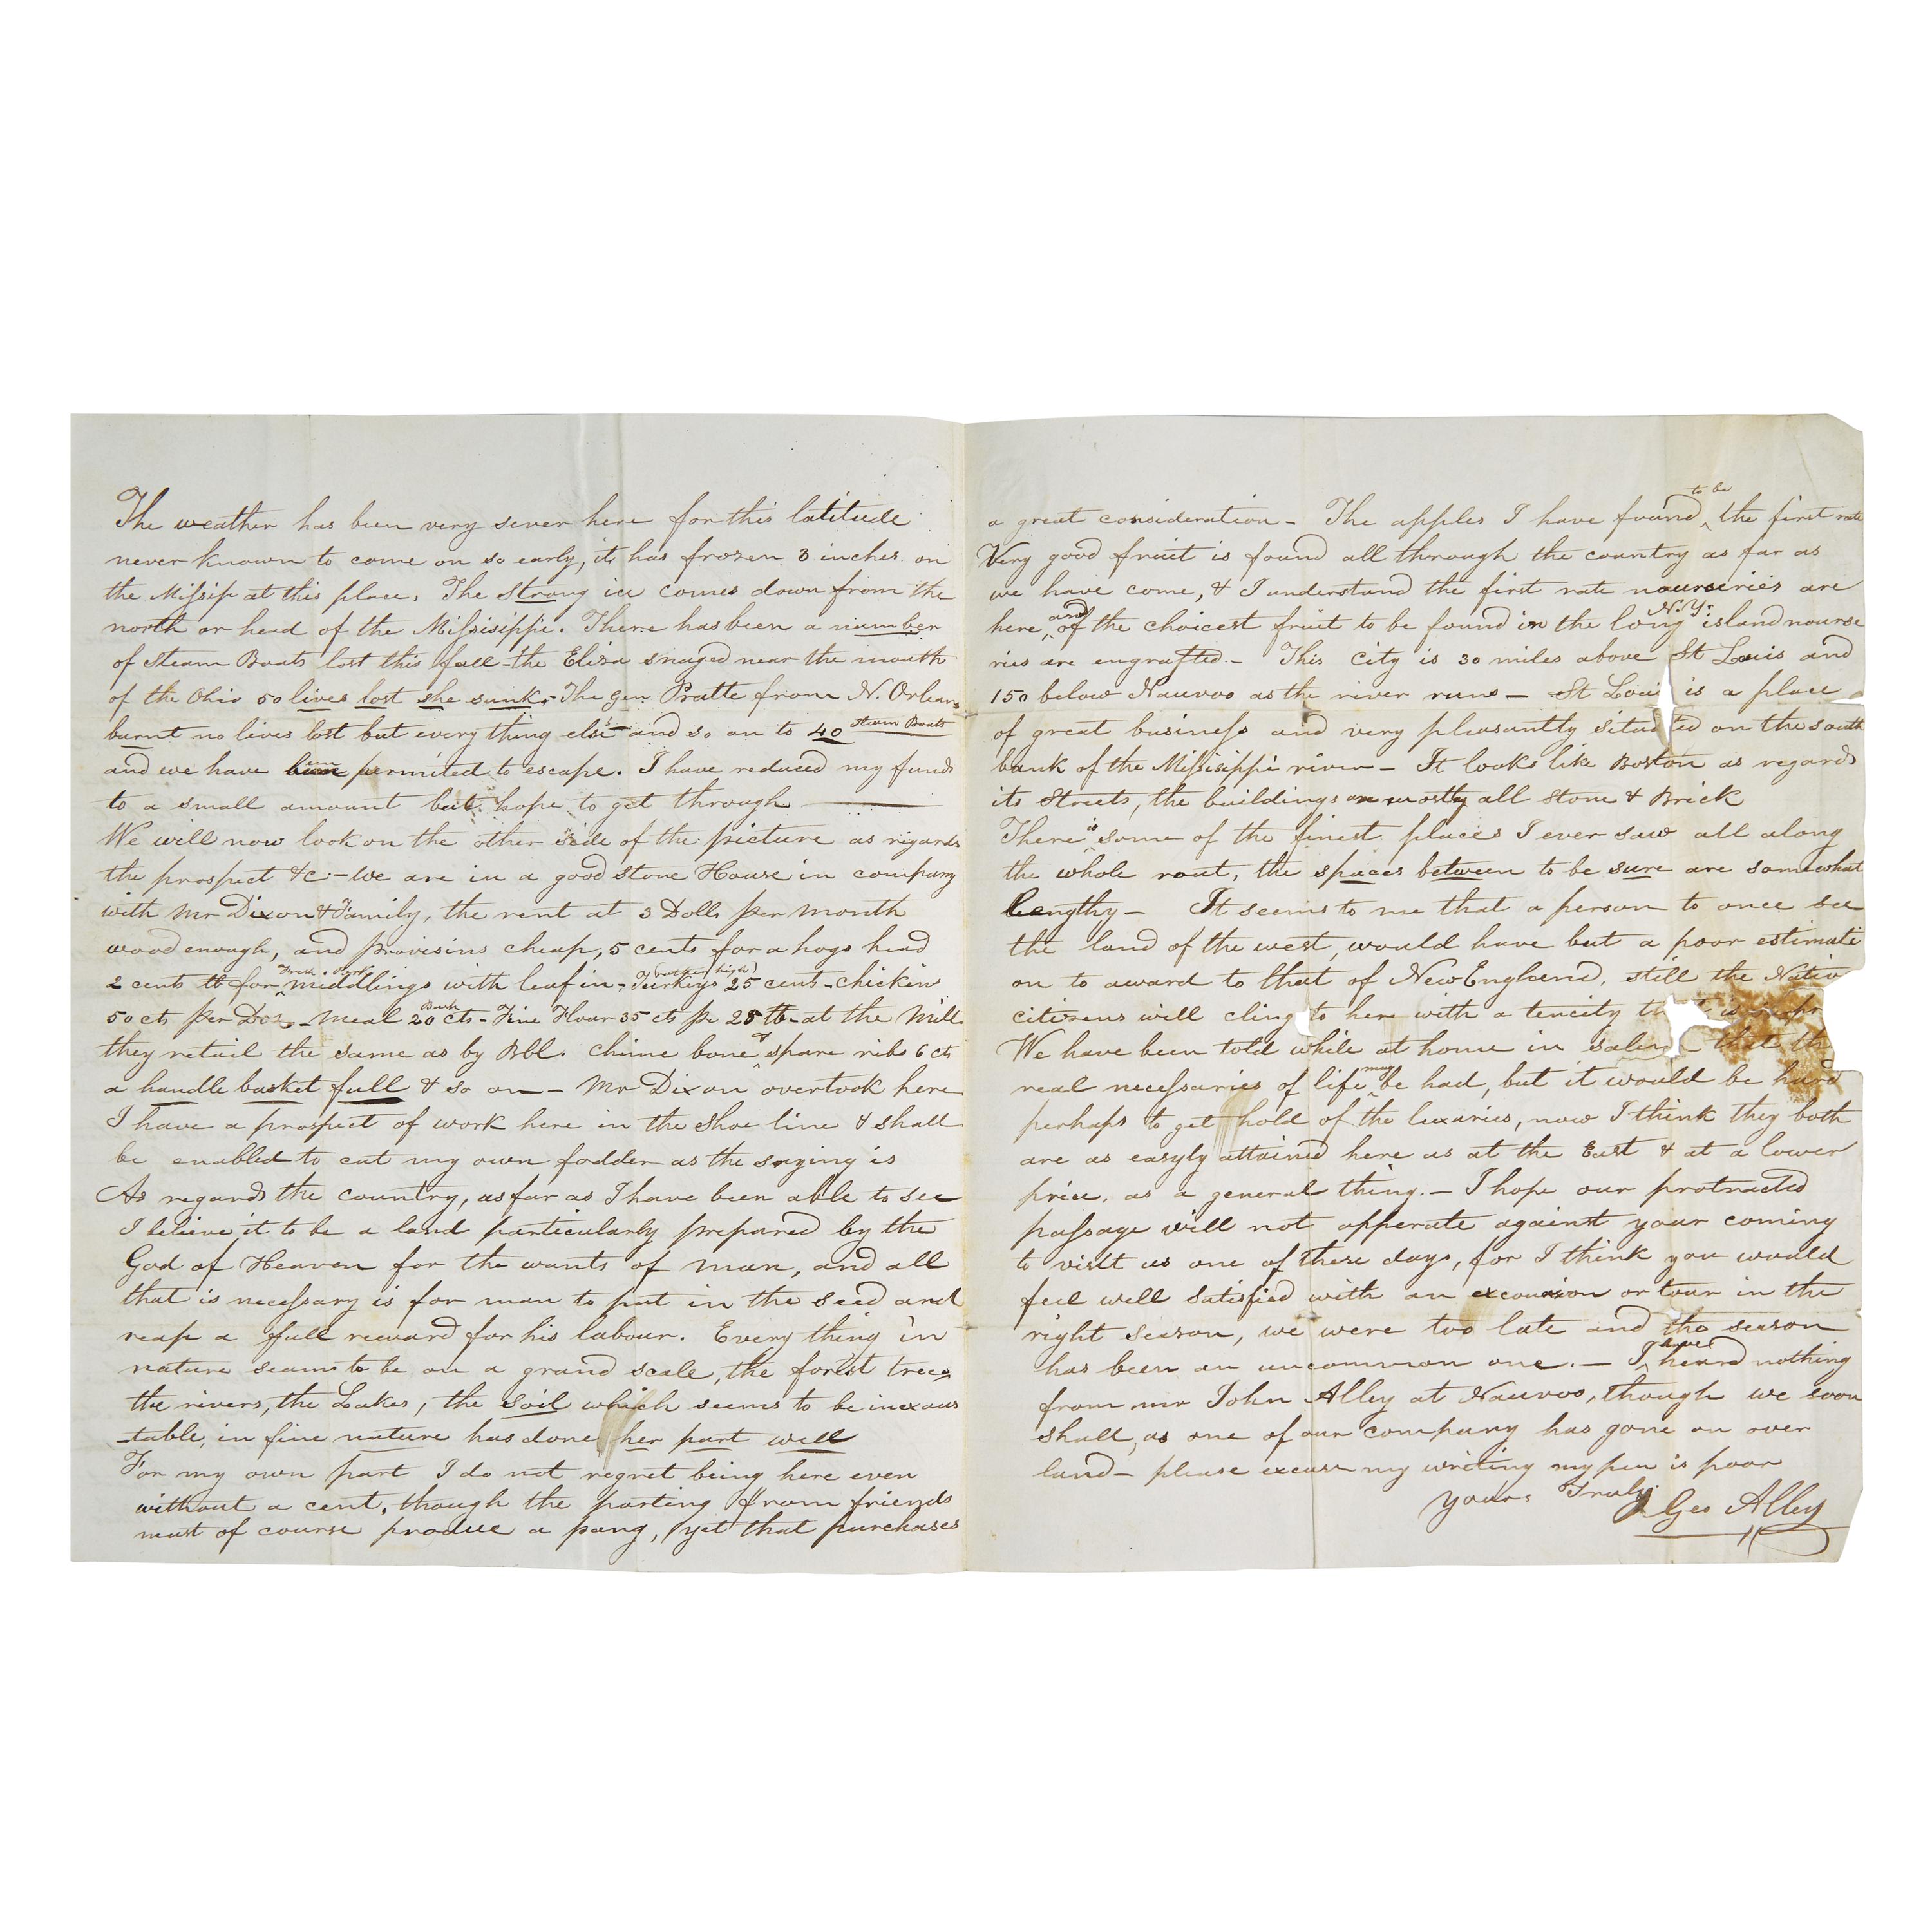 The weather has been very sever here for this latitude
never known to come on so early, it has frozen 3 inches on
the Missip at this place, The Strong ice comes down from the
north or head of the Missisippi. There has been a number
of Steam Boats lost this fall - the Eliza snaged near the mouth
of the Ohio 50 lives lost she sunk - The gen Pratte from N. Orleans
burnt no lives lost but every thing else - and so on to 40 Steam Boats
and we have been permited to escape. I have reduced my funds
to a small amount but hope to get through
We will now look on the other side of the picture as rigards
the prospect &c - We are in a good stone House in company
with Mr Dixon & Family, the rent at 3 Dolls per month
wood enough, and provisins cheap, 5 cents for a hogs head
2 cents lb for Fresh Pork middlings with leaf in - Turkeys (rather high) 25 cent - chickins
50 cts per Doz - meal 20 cts Bush - Fine Flour 35 cts pr 28 lb - at the Mill
they retail the same as by Bbl. Chine bone of spare ribs 6 cts
a handle basket full & so on - Mr Dixon overtook here
I have a prospect of work here in the shoe line & shall
be enabled to cut my own fodder as the saying is
As regards the country, as far as I have been able to see
I believe it to be a land particularly prepared by the
God of Heaven for the wants of man, and all
that is necessary is for man to put in the seed and
reap a full reward for his labour. Every thing in
nature seams to be on a grand scale, the forist trees
the rivers, the Lakes, the soil which seems to be inexaus
-table, in fine nature has done her part well
For my own part I do not regret being here even
without a cent, though the parting from friends
must of course produce a pang, yet that purchases
a great consideration - The apples I have found to be the first rate
Very good fruit is found all through the country as far as
we have come, & I understand the first rate nourseries are
here and of the choicest fruit to be found in the long island N.Y. nourse
ries are engrafted - This City is 30 miles above St Louis and
150 below Nauvoo as the river runs - St Loui is a place
of great business and very pleasantly situated on the south
bank of the Missisippi river - It looks like Boston as regards
its Streets, the buildings are mostly all Stone & Brick
There is some of the finest places I ever saw all along
the whole rout, the spaces between to be sure are somewhat
lengthy - It seems to me that a person to once see
the land of the west, would have but a poor estimati
on to award to that of New England, still the Nativ
citizens will cling to here with a tencity
We have been told while at home in Salem that th
real necessaries of life may be had, but it would be hard
perhaps to get hold of the luxuries, now I think they both
are as easyly attained here as at the East & at a lower
price, as a general thing. - I hope our protracted
passage will not opperate against your coming
to visit us one of these days, for I think you would
feel well satisfied with an excursion or tour in the
right season, we were too late and the season
has been an uncommon one. - I have heard nothing
from mr John Alley at Nauvoo, though we soon
shall, as one of our company has gone on over
land - please excuse my writing my pen is poor
Yours Truly
Geo Alley